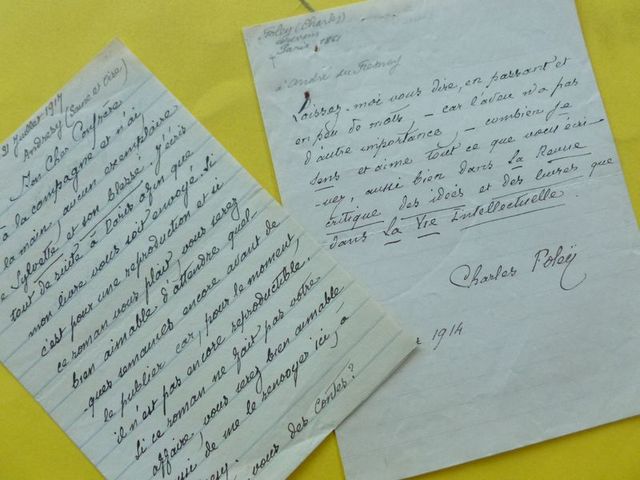 31 Juillet 1917
Andresy (Seine et Oise)
Mon Cher Confrère
à la campagne et n'ai
la main, aucun exemplaire
Sylvette et son blessé. J'écris
tout de suite à Paris afin que
mon livre vous soit envoyé. Si
c'est pour une reproduction et si
ce roman vous plait, vous serez
bien aimable d'attendre quel-
-ques semaines encore avant de
le publier car, pour le moment,
il n'est pas encore reproductible.
Si ce roman ne fait pas votre
affaire, vous serez bien aimable
de me le renvoyer ici, a
vous des contes?
Foleÿ (Charles)
écrivain
Paris 1861
à André du Fresnoy
Laissez-moi vous dire, en passant et
en peu de mots, – car l'aveu n'a pas
d'autre importance – combien je
sens et aime tout ce que vous écri-
-vez, aussi bien dans La Revue
critique des idées et des livres que
dans La Vie Intellectuelle.
Charles Foleÿ
1914